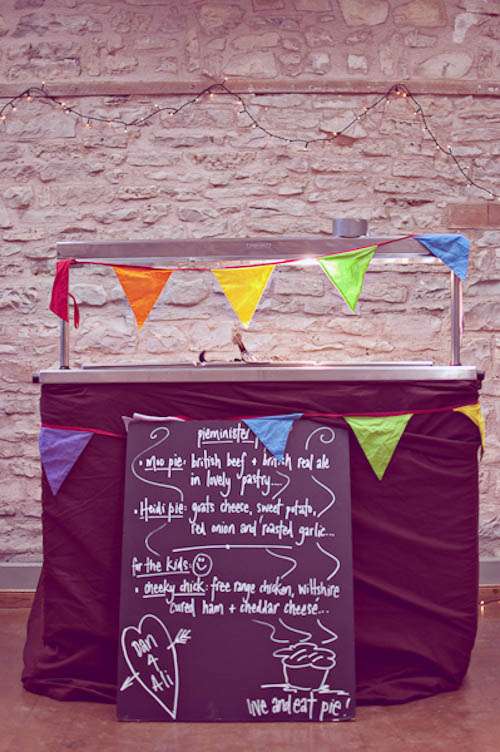 pieminister
• moo pie: british beef + british real ale
in lovely pastry...
• Heidi pie: goats cheese, sweet potato,
red onion and roasted garlic...
for the kids:
• cheeky chick: free range chicken, wiltshire
cured ham + cheddar cheese...
Dan
4
Ali
live and eat pie!